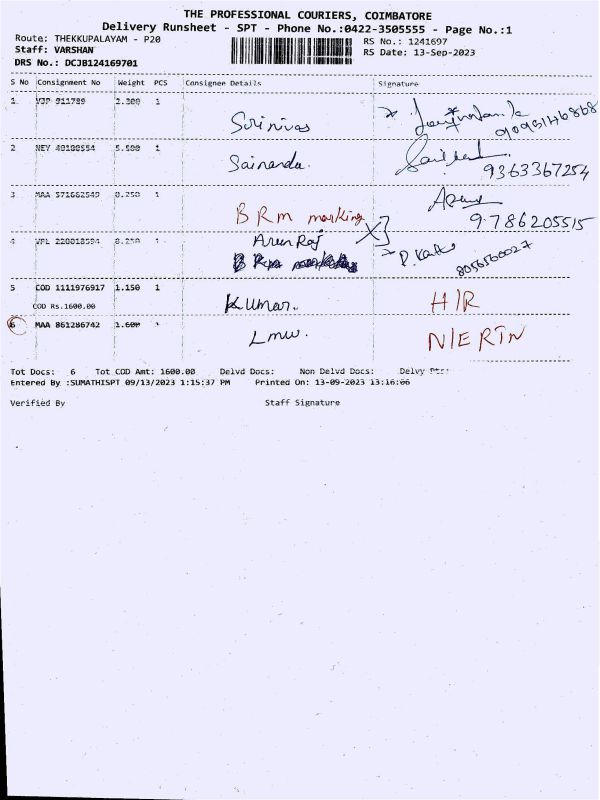 THE PROFESSIONAL COURIERS, COIMBATORE
Delivery Runsheet - SPT - Phone No.:0422-3505555 - Page No.:1
Route: THEKKUPALAYAM - P20
RS No.: 1241697
Staff: VARSHAN
RS Date: 13-Sep-2023
DRS No.: DCJB124169701
S No Consignment No Weight PCS Consignee Details Signature
1 VJP 911789 2.300 1 Srinivas 9095146868
2 NEY 40108554 5.500 1 Sainanda. 9363367254
3 MAA 571662549 0.250 1 BRm marking 9786205515
4 VPL 220018594 0.250 1 Arun Raj 8056560027
5 COD 1111976917 1.150 1 Kumar. H/R
COD Rs.1600.00
6 MAA 861286742 1.600 1 Lmw. N/E RTN
Tot Docs: 6 Tot COD Amt: 1600.00 Delvd Docs: Non Delvd Docs: Delvy Pts:
Entered By :SUMATHISPT 09/13/2023 1:15:37 PM Printed On: 13-09-2023 13:16:06
Verified By Staff Signature